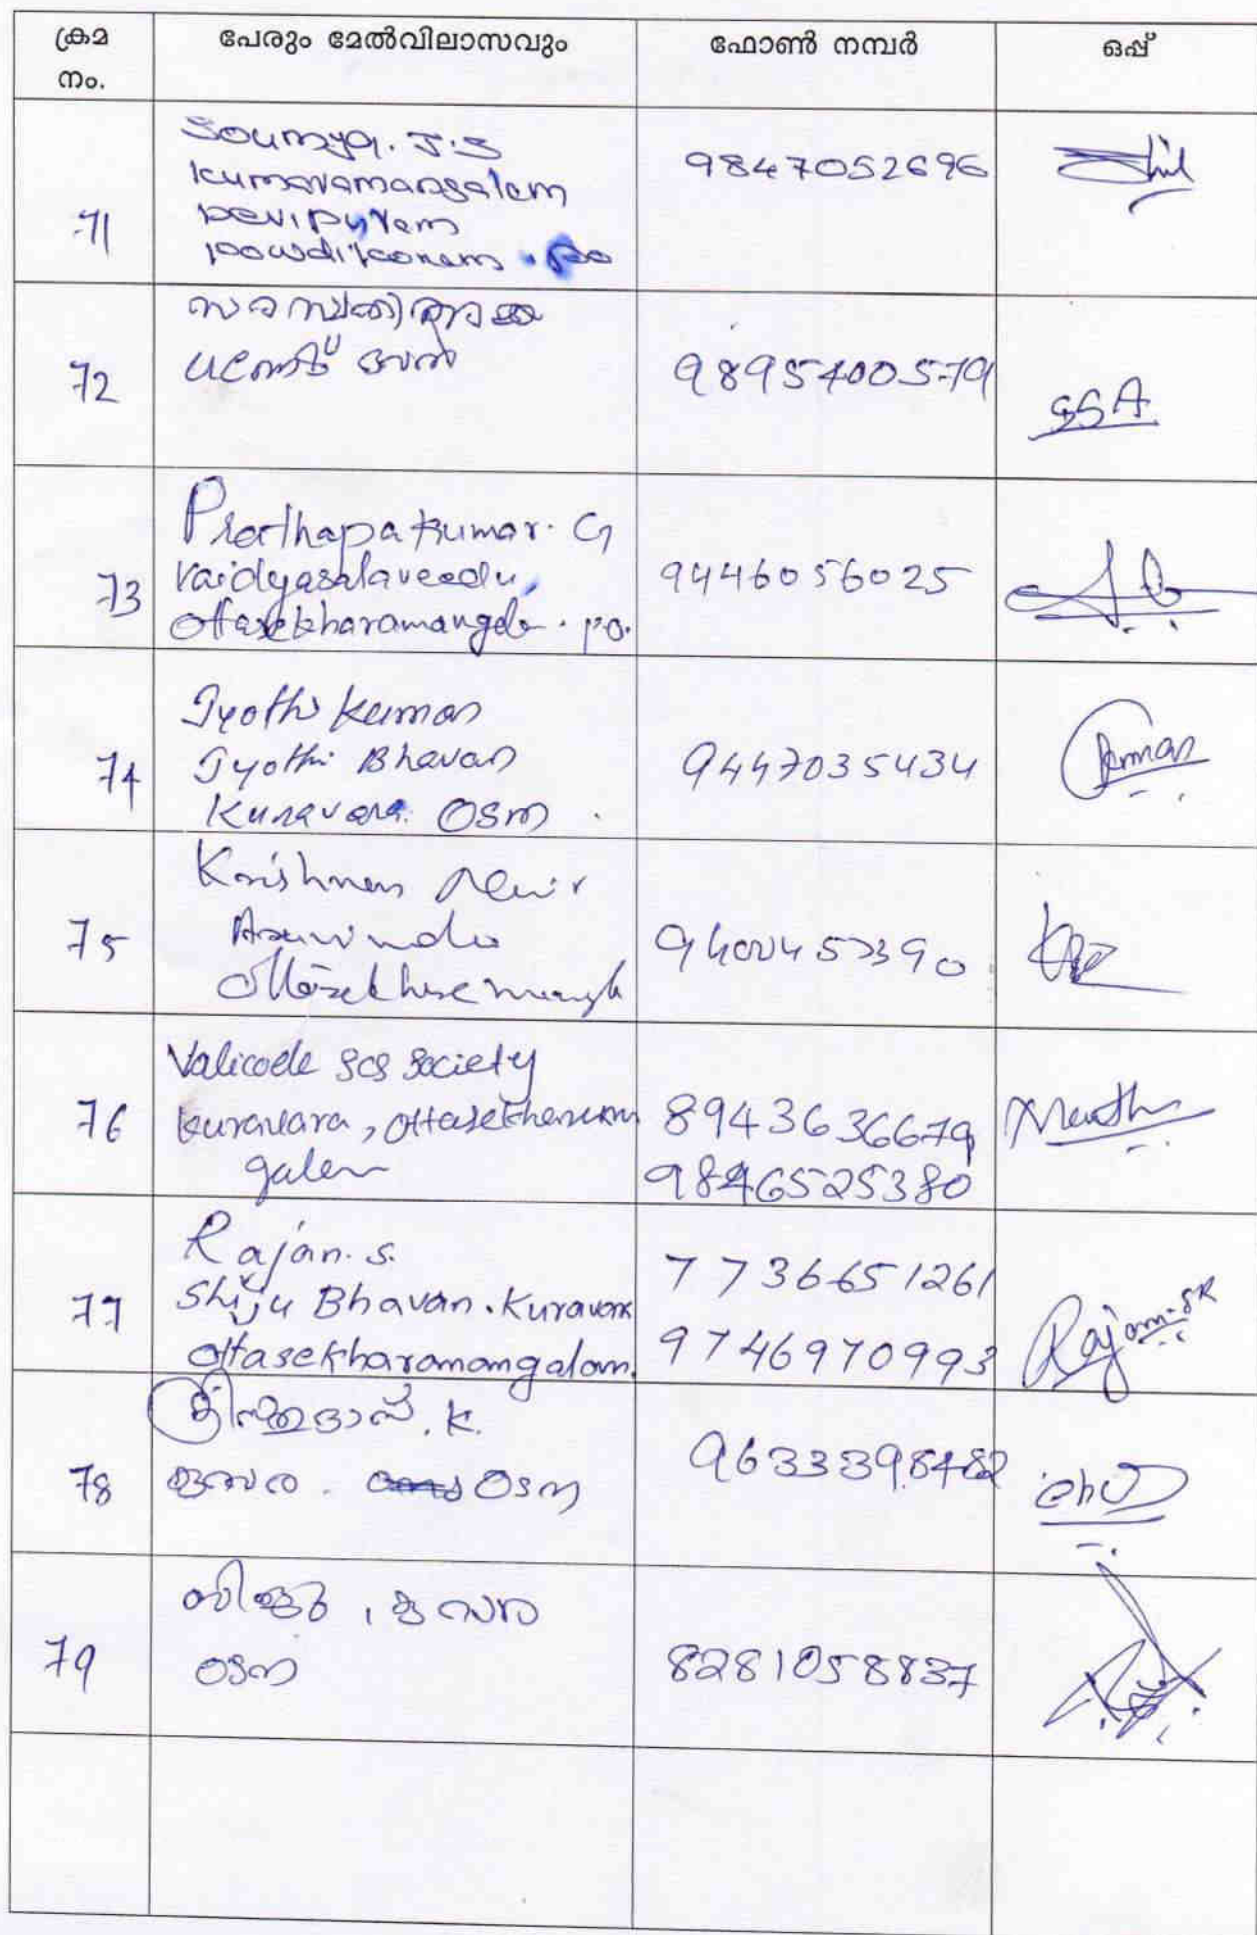 ക്രമ നം.
പേരും മേൽവിലാസവും
ഫോൺ നമ്പർ
ഒപ്പ്
71
Soumya. J.S
Kumaramangalam
Devipuram
Powdikonam . PO
9847052696
72
സരസ്വതിഅമ്മ
9895400579
SSA
73
Prathapakumar. G
Vaidyasalaveedu,
Ottasekharamangala . P.O.
9446056025
74
Jyothi Kumar
Jyothi Bhavan
Kuravara. OSM
9447035434
Kumar
75
Krishnan Nair
Aravindu
76
Valicode SCS Society
Kuravara, Ottasekharaman
galam
8943636679
9846525380
77
Rajan. S.
Shiju Bhavan. Kuravara
Ottasekharamangalam.
7736651261
9746970993
Rajan. SR
78
ക്രിസ്തുദാസ്. K.
കുറവര
9633398482
79
കുറവര
8281058837